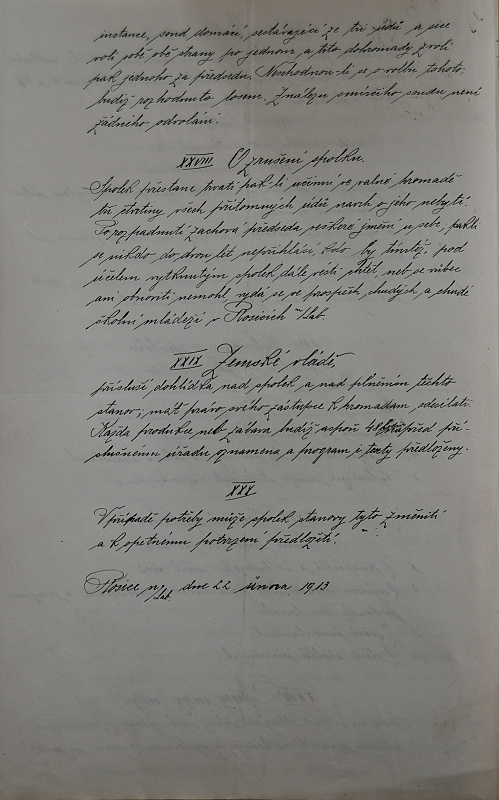 instance, soud domácí, sestávající ze tří údů a sice
volí sobě obě strany po jednom, a tito dohromady zvolí
pak jednoho za předsedu. Neshodnou-li se o volbu tohoto,
budiž rozhodnuto losem. Z nálezu smírčího soudu není
žádného odvolání.
XXVIII O zrušení spolku.
Spolek přestane trvati pak-li učiní ve valné hromadě
tři čtvrtiny všech přítomných údů návrh o jeho nebytí.
Po rozpadnutí zachová předseda veškeré jmění u sebe, pakli
se nikdo do dvou let nepřihlásí, kdo by tímtéž pod
účelem vytknutým spolek dále vésti chtěl, neb se vůbec
ani obnoviti nemohl, vydá se ve prospěch chudých a chudé
školní mládeži v Rosicích n/Lab.
XXIX Zemské vládě,
přísluší dohlídka nad spolek a nad plněním těchto
stanov; mát právo svého zástupce k hromadám sdesílati.
Každá produkce neb zábava budiž aspoň předem pří-
slušnému úřadu oznámena a program i texty předloženy.
XXX
V případě potřeby může spolek stanovy tyto změniti
a k opětnému potvrzení předložiti.
Rosice n/Lab. dne 22 února 1913